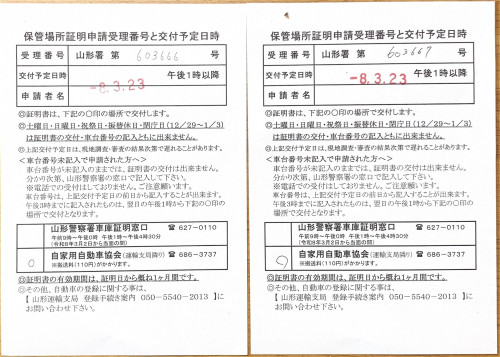 保管場所証明申請受理番号と交付予定日時
受理番号 山形署 第 603666 号
交付予定日時 -8.3.23 午後1時以降
申請者名
◎証明書は、下記の〇印の場所で交付します。
◎土曜日・日曜日・祝祭日・振替休日・閉庁日(12/29～1/3)
は証明書の交付・車台番号の記入ともに出来ません。
◎上記交付予定日は、現地調査・審査の結果次第で遅れることがあります。
<車台番号未記入で申請された方へ>
車台番号が未記入のままでは、証明書の交付は出来ません。
分かり次第、山形警察署の窓口で記入して下さい。
※電話での受付はしておりません。ご注意願います。
車台番号は、上記交付予定日の前日から記入することが出来ます。
午後3時までに記入されたものは、翌日の午後1時から下記の〇印の
場所で交付となります。
山形警察署車庫証明窓口 ☎627-0110
午前9時～午後0時 午後1時～午後4時30分
(令和8年3月2日から当面の間)
〇 自家用自動車協会(運輸支局隣り) ☎686-3737
※搬送料(110円)がかかります。
◎証明書の有効期間は、証明日から概ね1ヶ月間です。
◎その他、自動車の登録に関する事は、
【山形運輸支局 登録手続き案内 050-5540-2013】に
お問い合わせ下さい。
保管場所証明申請受理番号と交付予定日時
受理番号 山形署 第 603667 号
交付予定日時 -8.3.23 午後1時以降
申請者名
◎証明書は、下記の〇印の場所で交付します。
◎土曜日・日曜日・祝祭日・振替休日・閉庁日(12/29～1/3)
は証明書の交付・車台番号の記入ともに出来ません。
◎上記交付予定日は、現地調査・審査の結果次第で遅れることがあります。
<車台番号未記入で申請された方へ>
車台番号が未記入のままでは、証明書の交付は出来ません。
分かり次第、山形警察署の窓口で記入して下さい。
※電話での受付はしておりません。ご注意願います。
車台番号は、上記交付予定日の前日から記入することが出来ます。
午後3時までに記入されたものは、翌日の午後1時から下記の〇印の
場所で交付となります。
山形警察署車庫証明窓口 ☎627-0110
午前9時～午後0時 午後1時～午後4時30分
(令和8年3月2日から当面の間)
〇 自家用自動車協会(運輸支局隣り) ☎686-3737
※搬送料(110円)がかかります。
◎証明書の有効期間は、証明日から概ね1ヶ月間です。
◎その他、自動車の登録に関する事は、
【山形運輸支局 登録手続き案内 050-5540-2013】に
お問い合わせ下さい。